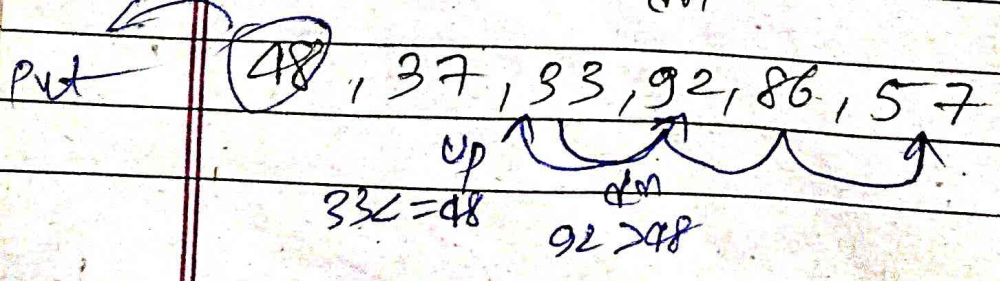 Pvt 48, 37, 33, 92, 86, 57
up dn
33<=48 92>48